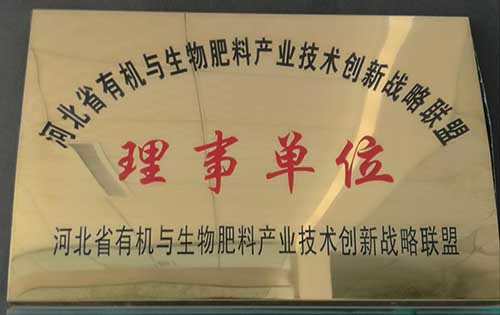 河北省有机与生物肥料产业技术创新战略联盟
理事单位
河北省有机与生物肥料产业技术创新战略联盟